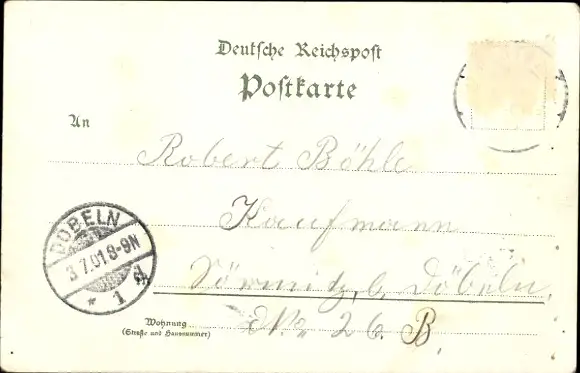 Deutsche Reichspost
Postkarte
An
Robert Böhle
Kaufmann
Sörmitz, b. Döbeln
DÖBELN
3.7.01.8-9N
* 1
Wohnung
(Straße und Hausnummer)
No 26 B